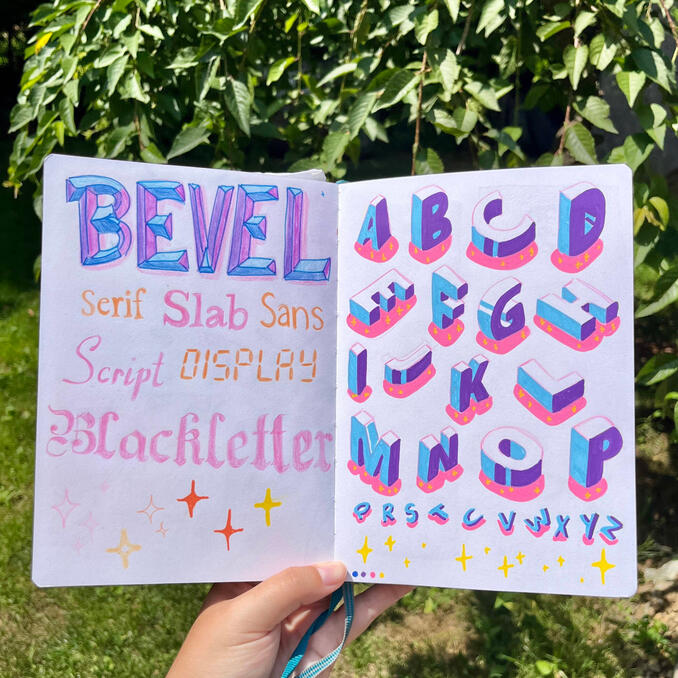 BEVEL
Serif Slab Sans
Script DISPLAY
Blackletter
A B C D
E F G H
I J K L
M N O P
Q R S T U V W X Y Z